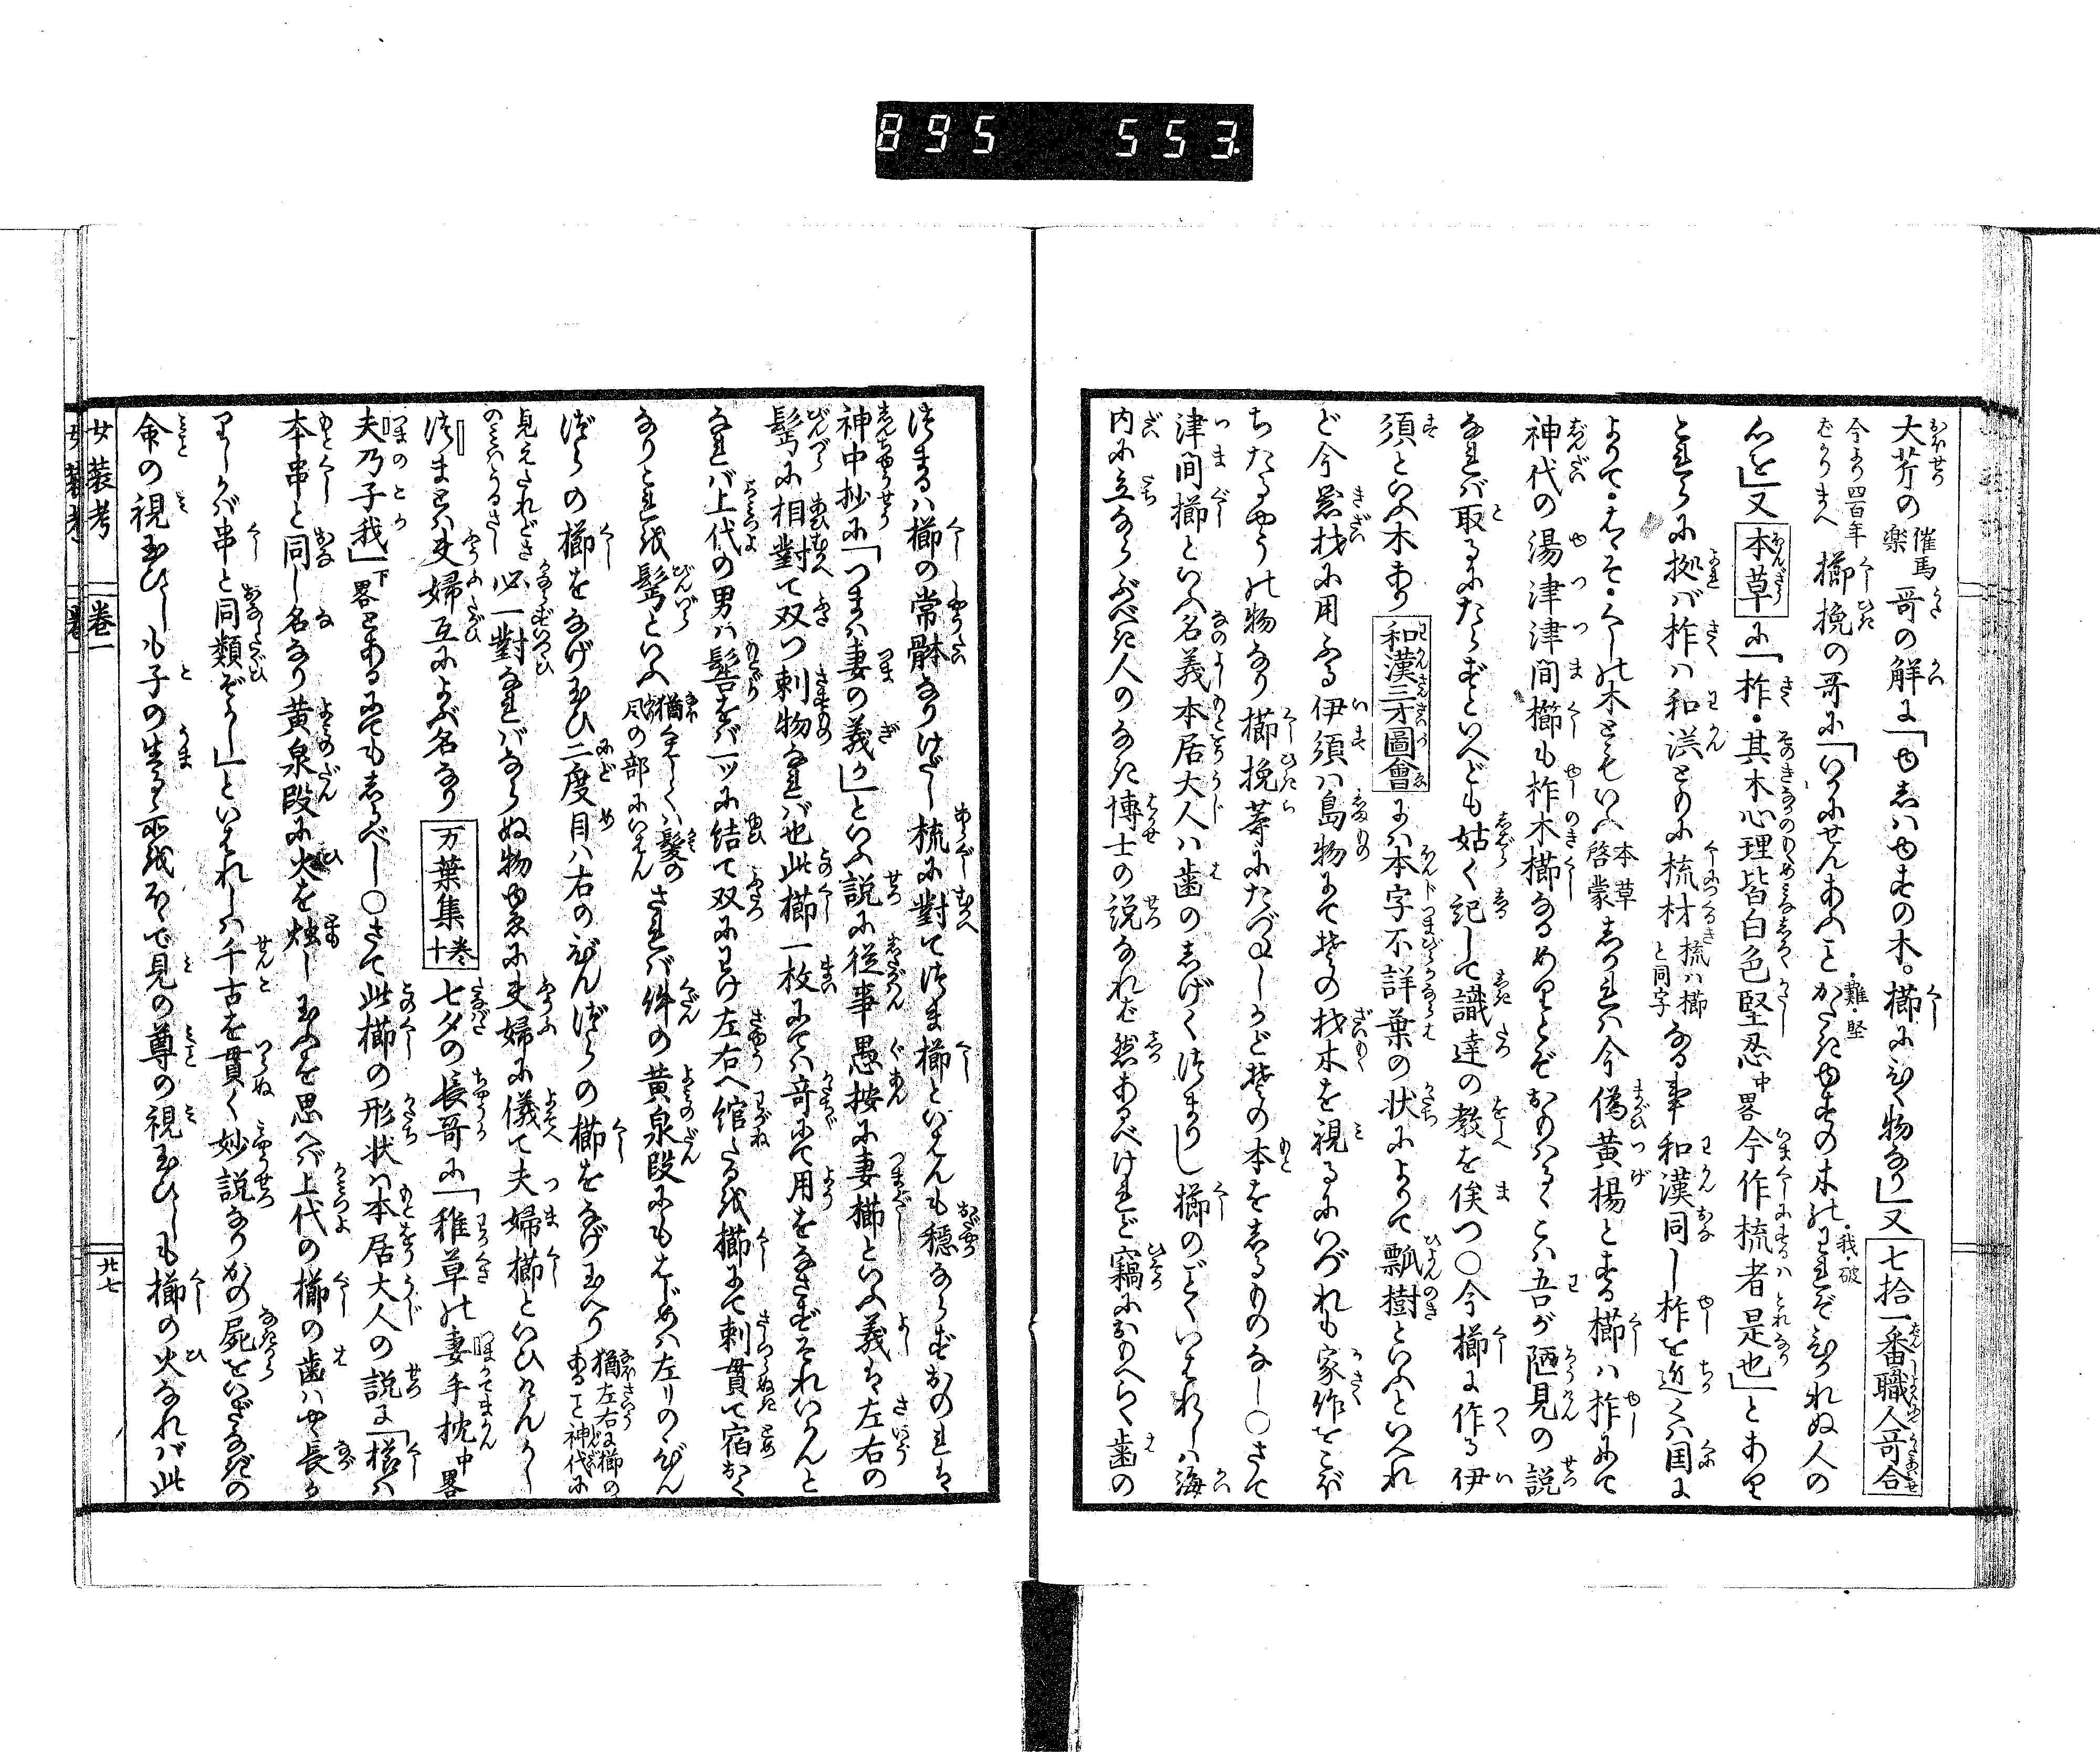 895 553
大芹の催馬楽哥の解に「ゆしハゆすの木。櫛にひく物なり」又七拾一番職人哥合
今より四百年ばかりまへ櫛挽の哥に「いかにせんあふことかたきゆすの木のわれぞひかれぬ人の
心を」又本草に「柞・其木心理皆白色堅忍中畧今作梳者是也」とあり
これらに拠バ柞ハ和漢ともに梳材梳ハ櫛と同字なる事和漢同し柞を近くハ国に
よりて・・くしの木ともいへ本草啓蒙しかれハ今偽黄楊とする櫛ハ柞にて
神代の湯津津間櫛も柞木櫛なるめりとぞおもハるゝこハ吾が陋見の説
なれバ取るにたらずといへども姑く記して識達の教を俟つ〇今櫛に作る伊
須といふ木あり和漢三才圖會にハ本字不詳葉の状によりて瓢樹といふといへれ
ど今器材に用ふる伊須ハ島物にて其の材木を視るにいづれも家作をこぼ
ちたるやうの物なり櫛挽等にたづねしかど其の本をしるものなし〇さて
津間櫛といふ名義本居大人ハ歯のしげくつまりし櫛のごといはれしハ海
内に立ならぶべき人のなき博士の説なれば然あるべけれど竊におもへらく歯の
つまるハ櫛の常躰なりけだし梳に對てつま櫛といはんも穏ならずおのれは
神中抄に「つまハ妻の義か」といふ説に従事愚按に妻櫛といふ義は左右の
髻に相對て双つ刺物なれバ也此櫛一枚にてハ奇にて用をなさずそれいかんと
なれバ上代の男ハ髻をバ一ッに結て双にわけ左右へ綰たるを櫛にて刺貫て宿おく
なりこれを髻といふ猶くハしくハ髪の風の部にいはんされバ件の黄泉段にもはじめハ左りのびん
づらの櫛をなげ玉ひ二度目ハ右のびんづらの櫛をなげ玉へり猶左右に櫛のあること神代に
見えたれどさのミハうるさし必一對なれバならぬ物ゆゑに夫婦に儀て夫婦櫛といひけんかし
つまとハ夫婦互によぶ名なり万葉集十巻七夕の長哥に「稚草の妻手枕中畧
夫乃子我」下畧とあるにてもしるべし〇さて此櫛の形状ハ本居大人の説に「櫛ハ
本串と同し名なり黄泉段に火を燭し玉ふを思へバ上代の櫛の歯ハやゝ長か
りしかバ串と同類ぞかし」といはれしハ千古を貫く妙説なりかの屍をいざなぎの
命の視玉ひしも子の生る所をおして見の尊の視玉ひしも櫛の火なれバ此
女装考 巻一 廿七